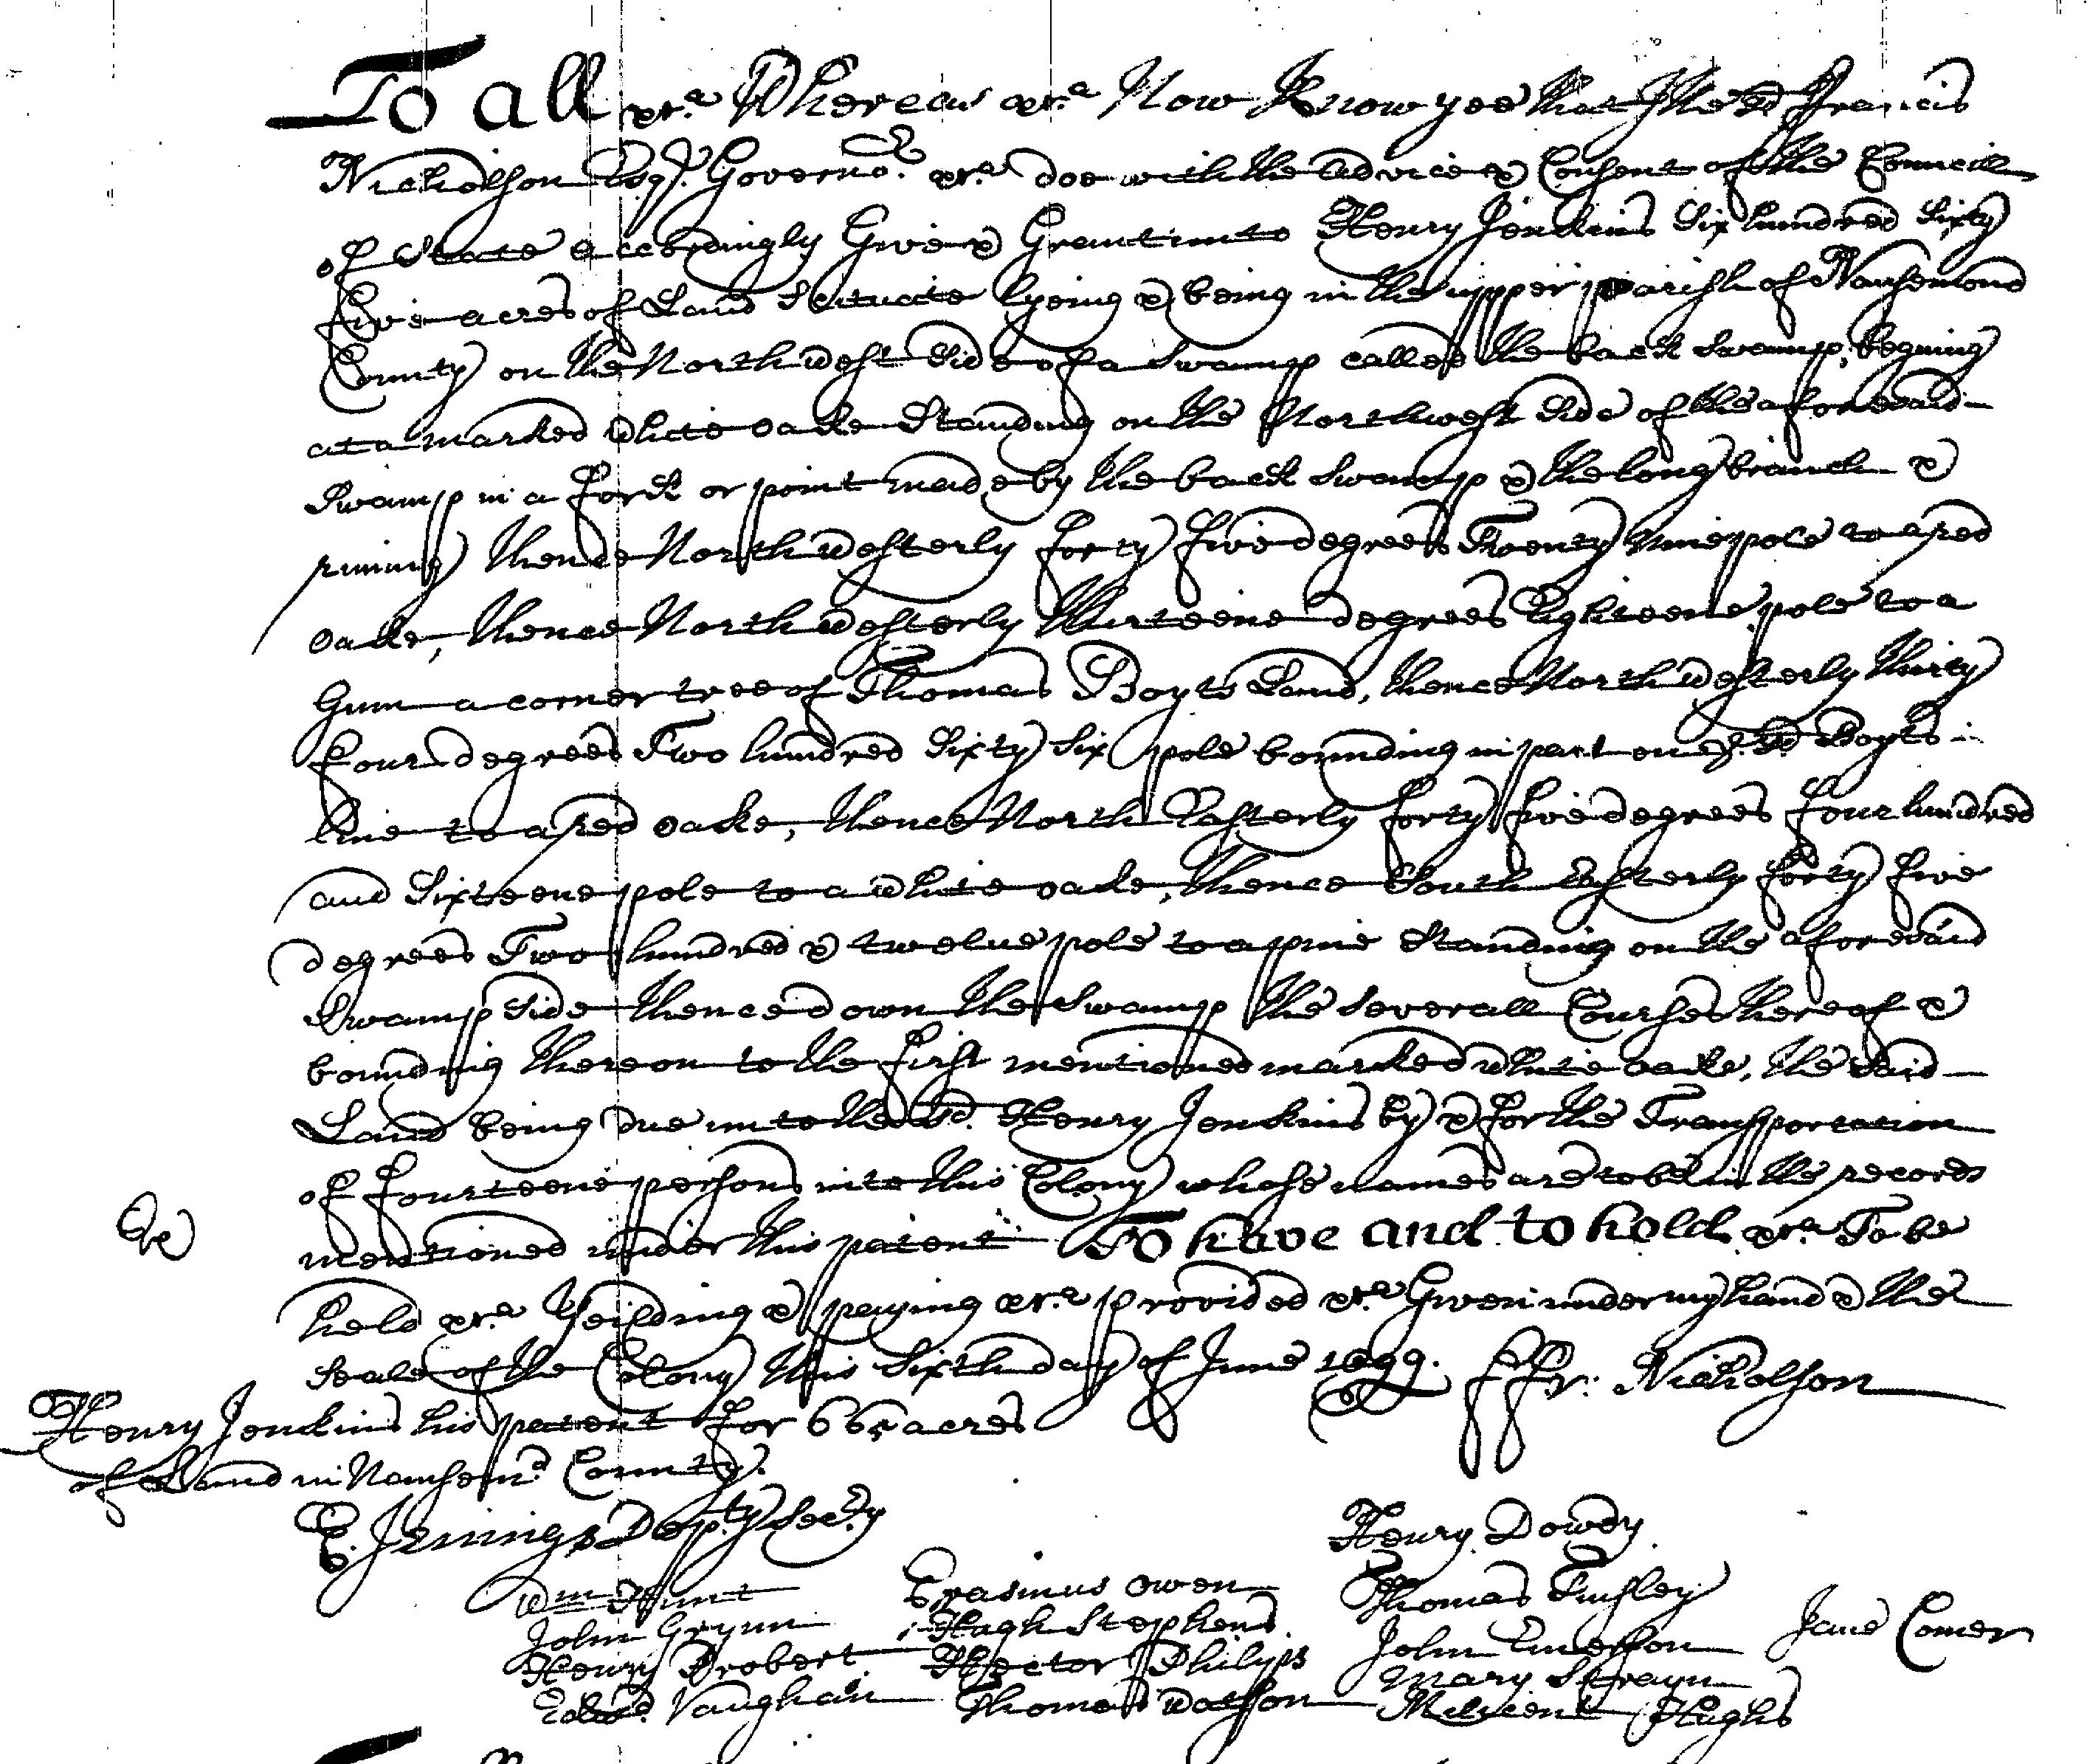 To all &ct.a Whereas &ct.a Now Know yee that I the sd. Francis
Nicholson Esqr. Governor. &ct.a doe with the advice & Consent of the Councill
of State accordingly Give & Grant unto Henry Jenkins Six hundred Sixty
five acres of Land Scituate lyeing & being in the upper parish of Nansemond
County on the North west Side of a Swamp called the back Swamp, begining
at a marked white oake Standing on the Northwest Side of the aforesaid
Swamp in a fork or point made by the back Swamp & the long branch &
runing thence North westerly forty five degrees Twenty nine pole to a red
oake, thence North westerly thirteene degrees Eighteene pole to a
Gum a corner tree of Thomas Boyts Land, thence North westerly thirty
four degrees Two hundred Sixty Six pole bounding in part on ye. sd. Boyts
line to a red oake, thence North Easterly forty five degrees four hundred
and Sixteene pole to a white oake, thence South Easterly forty five
degrees Two hundred & twelve pole to a pine Standing on the aforesaid
Swamp Side thence down the Swamp the Severall Courses thereof &
bounding thereon to the first mentioned marked white oake, the Said
Land being due unto the sd. Henry Jenkins by & for the Transportation
of fourteene persons into this Colony whose names are to be in the records
mentioned under this patent To have and to hold &ct.a To be
held &ct.a Yeilding & paying &ct.a provided &ct.a Given under my hand & the
Seale of the Colony this Sixth day of June 1699. ffr: Nicholson
Henry Jenkins his patent for 665 acres
of Land in Nansemd. County.
E. Jenings Depty Secry
Henry Dowdy
Wm Hunt Erasmus Owen Thomas Tinsley
John Grynn Hugh Stephens John Emerson Jane Comer
Henry Probert Hector Philips Mary Strayn
Edwd. Vaughan Thomas Watson Milicent Hughs
To